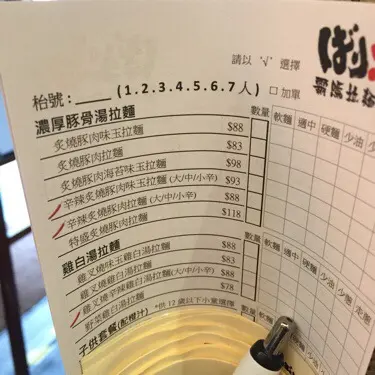 請以 '√' 選擇
枱號: (1.2.3.4.5.6.7人) □加單
濃厚豚骨湯拉麵 數量 軟麵 適中 硬麵 少油 少
炙燒豚肉味玉拉麵 $88
炙燒豚肉拉麵 $83
炙燒豚肉海苔味玉拉麵 $98
辛辣炙燒豚肉味玉拉麵(大/中/小辛) $93
辛辣炙燒豚肉拉麵(大/中/小辛) $88
特盛炙燒豚肉拉麵 $118
雞白湯拉麵 數量 軟麵 適中 硬麵 少油 少 走
雞叉燒味玉雞白湯拉麵 $88
雞叉燒雞白湯拉麵 $83
雞叉燒辛辣雞白湯拉麵(大/中/小辛) $88
野菜雞白湯拉麵 $78
子供套餐(配橙汁) *供12歲以下小童選擇 數量 軟麵 適中